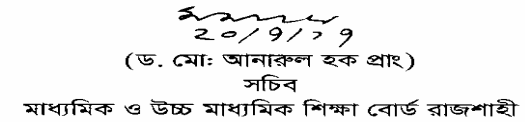 20/9/19
(ড. মোঃ আনারুল হক প্রাং)
সচিব
মাধ্যমিক ও উচ্চ মাধ্যমিক শিক্ষা বোর্ড রাজশাহী